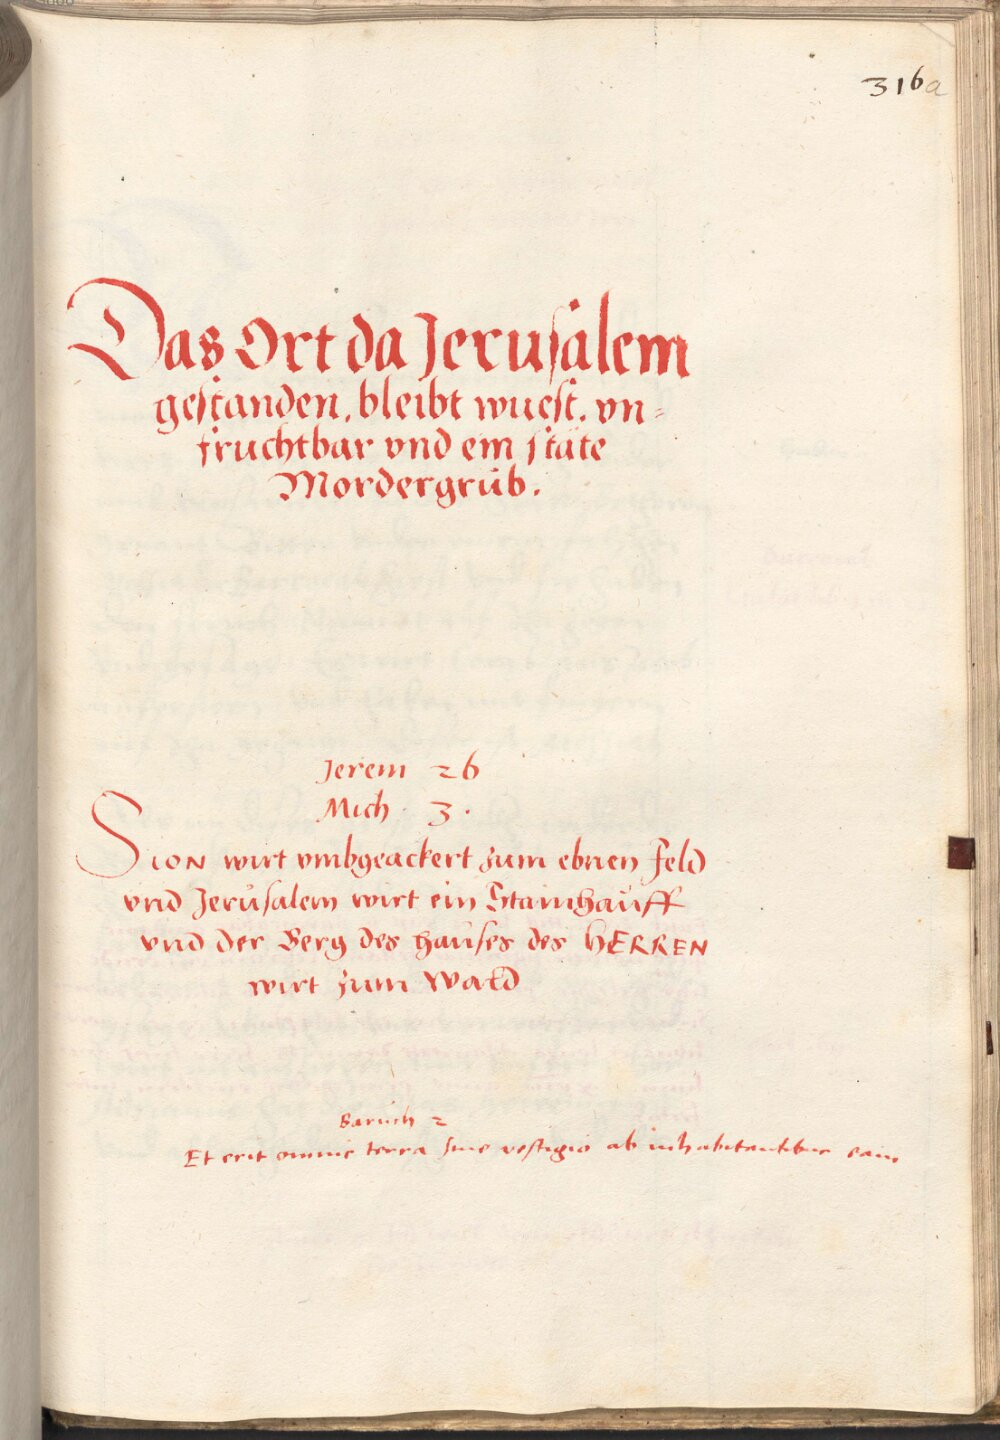 316a
Das Ort da Jerusalem
gestanden, bleibt wuest, vn=
fruchtbar vnd ein stäte
Mordergrůb.
Jerem 26
Mich. 3.
SION wirt vmbgeackert zum ebnen Feld
vnd Jerůsalem wirt ein Stainhaůff
vnd der Berg des Haůses des HERREN
wirt zum Wald
Barůch 2
Et erit omnis terra sine vestigio ab inhabitantibus eam